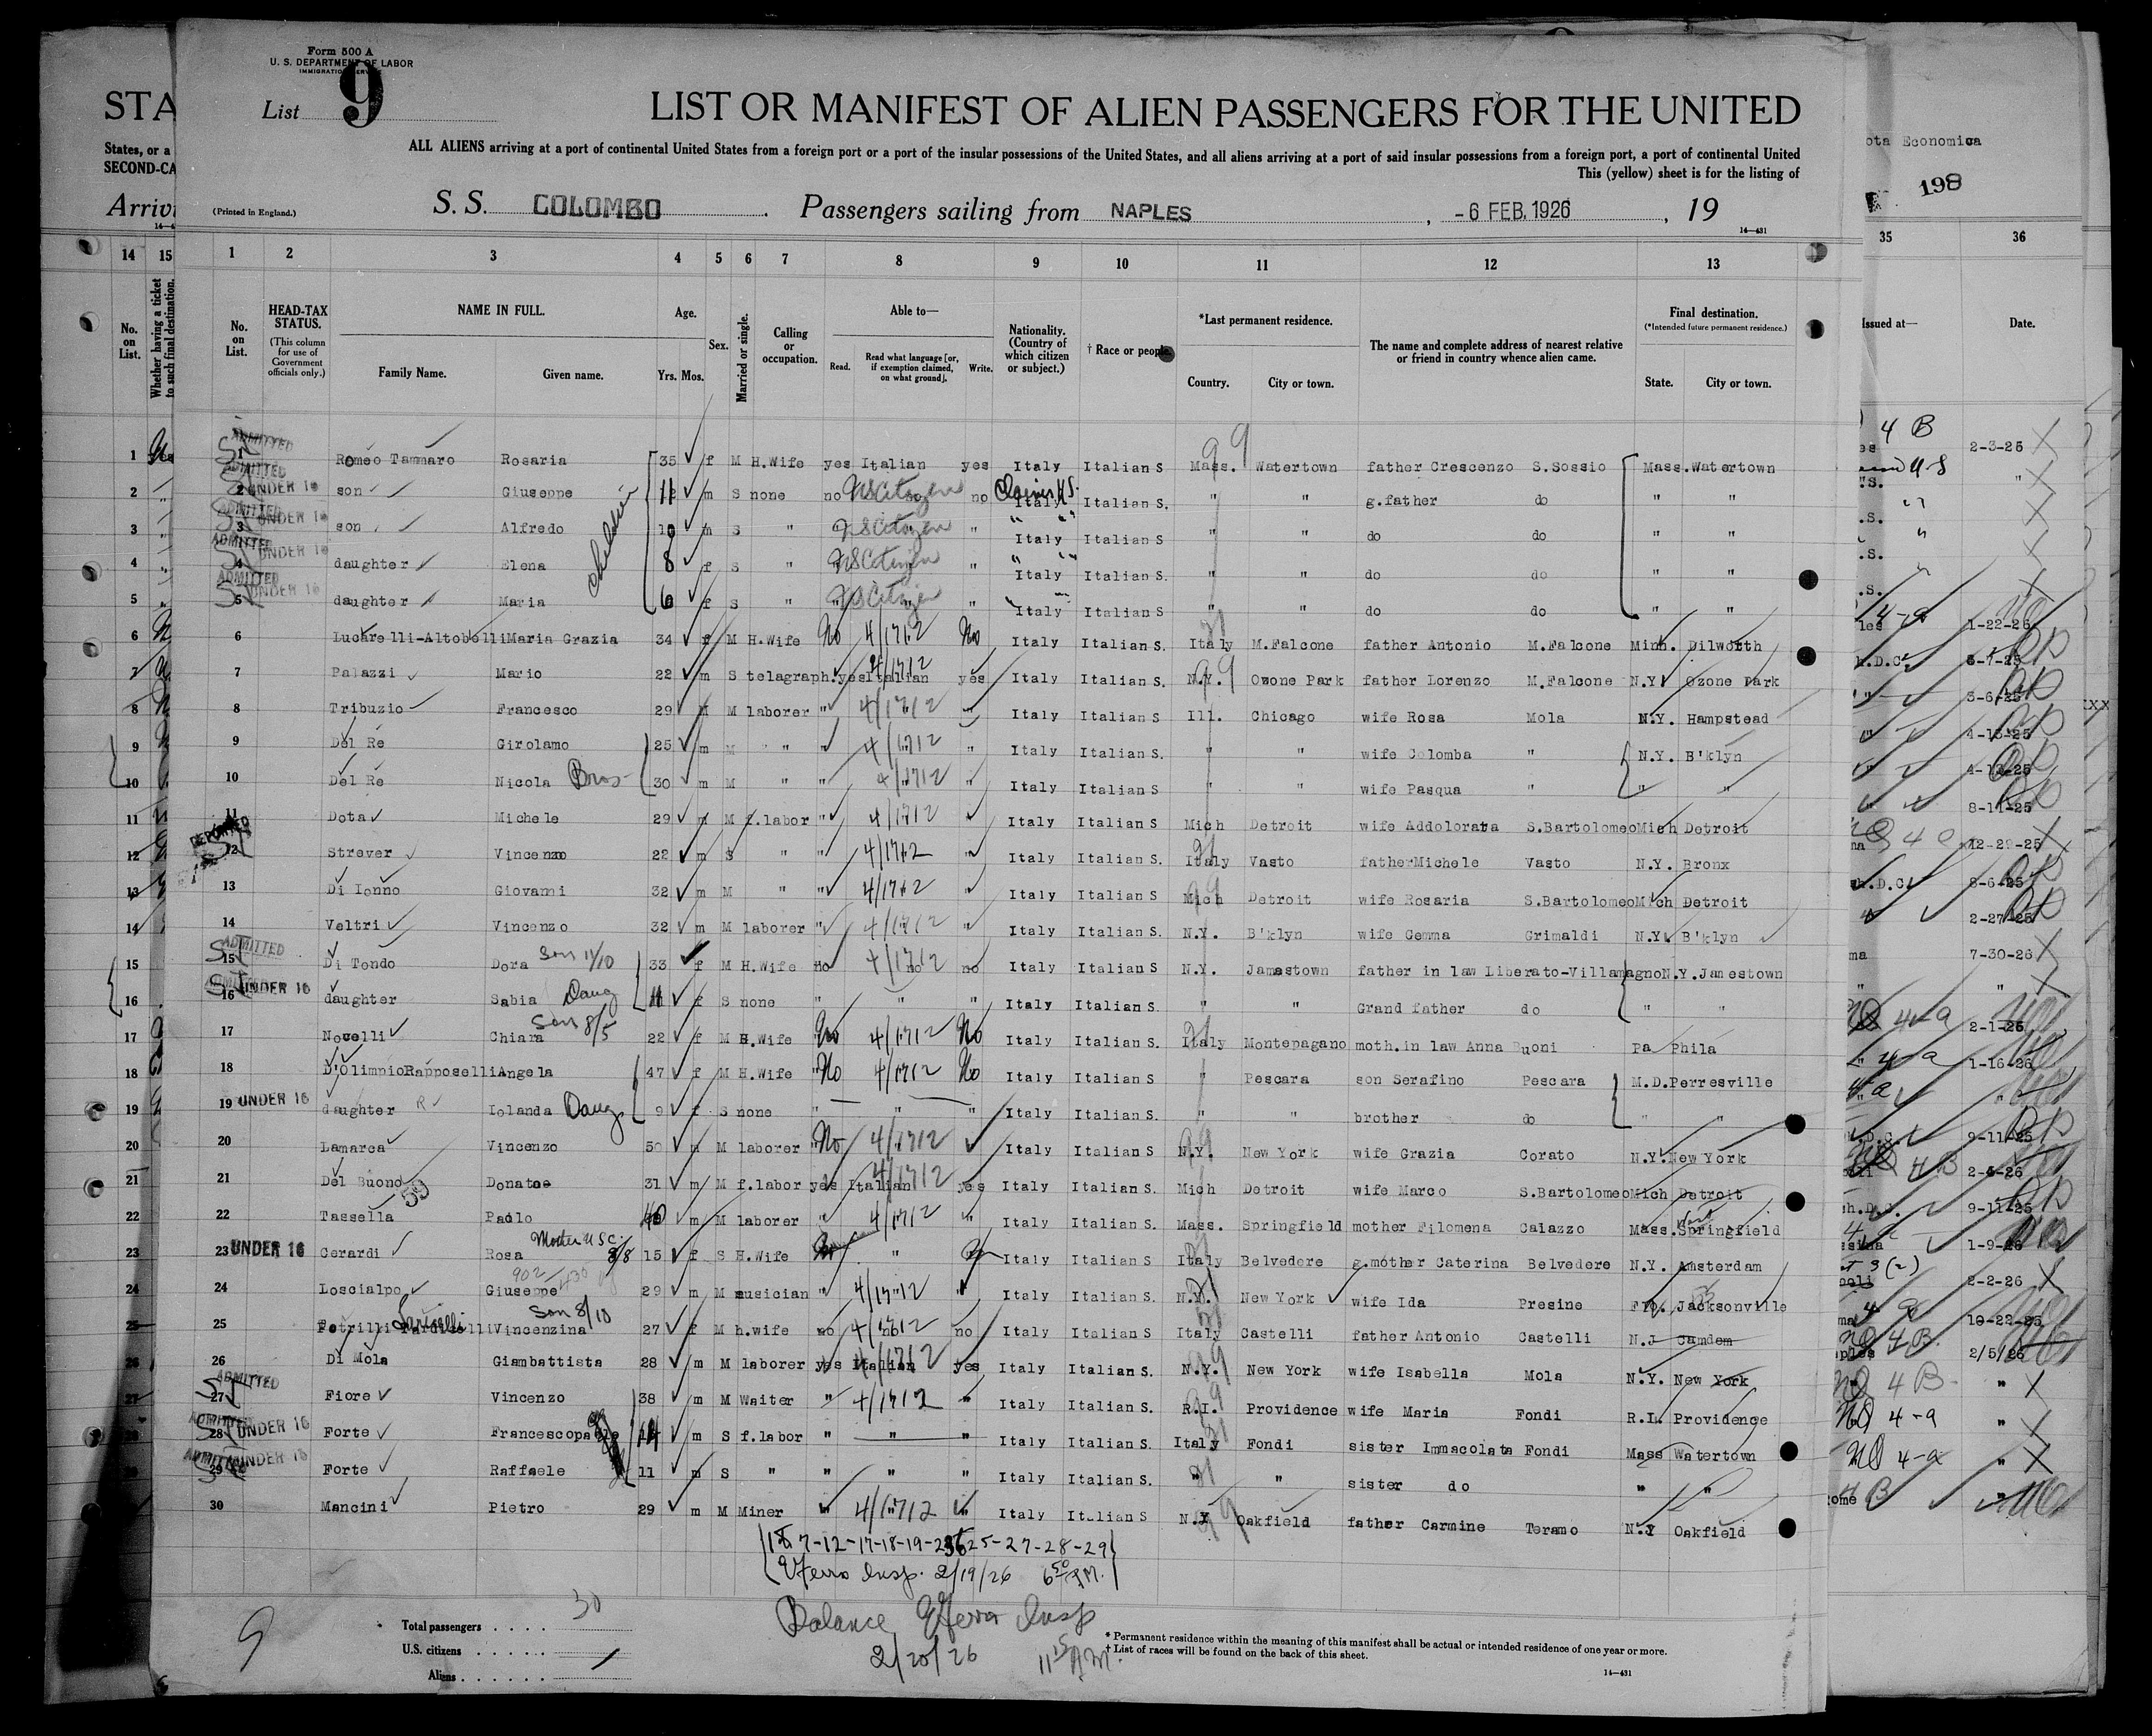 Form 500 A
U. S. DEPARTMENT OF LABOR
IMMIGRATION SERVICE
List 9
STA
LIST OR MANIFEST OF ALIEN PASSENGERS FOR THE UNITED
States, or a
ALL ALIENS arriving at a port of continental United States from a foreign port or a port of the insular possessions of the United States, and all aliens arriving at a port of said insular possessions from a foreign port, a port of continental United
SECOND-CA
This (yellow) sheet is for the listing of
ota Economica
198
Arrivi
(Printed in England.)
S. S. COLOMBO Passengers sailing from NAPLES, -6 FEB. 1926, 19
14—431
14 15 1 2 3 4 5 6 7 8 9 10 11 12 13 35 36
No. on List.
Whether having a ticket to such final destination.
No. on List.
HEAD-TAX STATUS.
(This column for use of Government officials only.)
NAME IN FULL.
Family Name. Given name.
Age.
Yrs. Mos.
Sex.
Married or single.
Calling or occupation.
Able to—
Read. Read what language [or, if exemption claimed, on what ground]. Write.
Nationality. (Country of which citizen or subject.)
† Race or people.
*Last permanent residence.
Country. City or town.
The name and complete address of nearest relative or friend in country whence alien came.
Final destination.
(*Intended future permanent residence.)
State. City or town.
Issued at— Date.
1 ADMITTED 1 Romeo Tammaro Rosaria 35 f M H.Wife yes Italian yes Italy Italian S Mass. Watertown father Crescenzo S.Sossio Mass. Watertown 4 B 2-3-26
2 ADMITTED 2 UNDER 16 son Giuseppe 11 m S none no US Citizen no Claims U.S. Italy Italian S. " " g.father do " " "
3 ADMITTED 3 UNDER 16 son Alfredo 10 m S " US Citizen " Italy Italian S " " do do " " "
4 ADMITTED 4 UNDER 16 daughter Elena 8 f S " US Citizen " Italy Italian S. " " do do " "
5 ADMITTED 5 UNDER 16 daughter Maria 6 f S " US Citizen " Italy Italian S " " do do " "
children
6 6 Lucarelli-Altobelli Maria Grazia 34 f M H.Wife No 4/1712 No Italy Italian S. Italy M.Falcone father Antonio M.Falcone Minn. Dilworth 4-a 1-22-26
7 7 Palazzi Mario 22 m S telagraph. yes Italian 4/1712 yes Italy Italian S. N.Y. Owone Park father Lorenzo M.Falcone N.Y. Ozone Park
8 8 Tribuzio Francesco 29 M M laborer " 4/1712 " Italy Italian S Ill. Chicago wife Rosa Mola N.Y. Hampstead
9 9 Del Re Girolamo 25 m M " " 4/1712 " Italy Italian S. " " wife Colomba " N.Y. B'klyn
10 10 Del Re Nicola Bros 30 m M " " 4/1712 " Italy Italian S " " wife Pasqua " " "
11 11 Dota Michele 29 m M f.labor " 4/1712 Italy Italian S Mich Detroit wife Addolorata S.Bartolomeo Mich Detroit 8-11-25
12 DEPORTED 12 Strever Vincenzo 22 m S " " 4/1712 " Italy Italian S. Italy Vasto father Michele Vasto N.Y. Bronx 12-29-25
13 13 Di Ionno Giovanni 32 m M " " 4/1712 " Italy Italian S Mich Detroit wife Rosaria S.Bartolomeo Mich Detroit 8-6-25
14 14 Veltri Vincenzo 32 m M laborer " 4/1712 " Italy Italian S. N.Y. B'klyn wife Gemma Grimaldi N.Y. B'klyn 2-27-25
15 ADMITTED 15 Di Tondo Dora 33 f M H.Wife no 4/1712 no no Italy Italian S N.Y. Jamastown father in law Liberato-Villamagno N.Y. Jamestown 7-30-26
16 ADMITTED 16 UNDER 16 daughter Sabia Daug 11 f S none " " " Italy Italian S. " " Grand father do " " "
17 17 Novelli Chiara 22 f M H.Wife No 4/1712 No Italy Italian S. Italy Montepagano moth.in law Anna Buoni Pa Phila 4-a 2-1-26
18 18 D'Olimpio Rapposelli Angela 47 f M H.Wife No 4/1712 No Italy Italian S " Pescara son Serafino Pescara M.D. Perresville 4-a 1-16-26
19 19 UNDER 16 daughter Iolanda Daug 9 f S none " " " Italy Italian S. " " brother do " " "
20 20 Lamarca Vincenzo 50 m M laborer No 4/1712 Italy Italian S N.Y. New York wife Grazia Corato N.Y. New York 9-11-25
21 21 Del Buono Donatoe 31 m M f.labor yes Italian 4/1712 yes Italy Italian S. Mich Detroit wife Marco S.Bartolomeo Mich Detroit 2-5-26
22 22 Tassella Paolo 40 m M laborer " 4/1712 " Italy Italian S. Mass. Springfield mother Filomena Caiazzo Mass. West Springfield 9-11-25
23 23 UNDER 16 Cerardi Rosa Mother USC. 15 f S H.Wife " Italy Italian S Italy Belvedere g.mother Caterina Belvedere N.Y. Amsterdam 1-9-26
24 24 Loscialpo Giuseppe 29 m M musician " 4/1712 " Italy Italian S. N.Y. New York wife Ida Presine Flo. Jacksonville 2-2-26
25 25 Petrilli Vincenzina 27 f M h.wife no 4/1712 no no Italy Italian S Italy Castelli father Antonio Castelli N.J Camdem 10-22-25
26 26 Di Mola Giambattista 28 m M laborer yes Italian 4/1712 yes Italy Italian S. N.Y. New York wife Isabella Mola N.Y. New York 4 B 2/5/26
27 ADMITTED 27 Fiore Vincenzo 38 m M Waiter " 4/1712 " Italy Italian S. R.I. Providence wife Maria Fondi R.I. Providence 4 B "
28 ADMITTED 28 UNDER 16 Forte Francescopaolo 14 m S f.labor " " " Italy Italian S. Italy Fondi sister Immacolata Fondi Mass Watertown 4-a "
29 ADMITTED 29 UNDER 16 Forte Raffaele 11 m S " " " " Italy Italian S. " " sister do " " 4-a "
30 Mancini Pietro 29 m M Miner " 4/1712 Italy Italian S N.Y Oakfield father Carmine Teramo N.Y Oakfield B "
2/19/26 6 50 P.M.
Balance Insp
2/20/26 11 15 A.M.
9
Total passengers 30
U.S. citizens
Aliens
* Permanent residence within the meaning of this manifest shall be actual or intended residence of one year or more.
† List of races will be found on the back of this sheet.
14—431